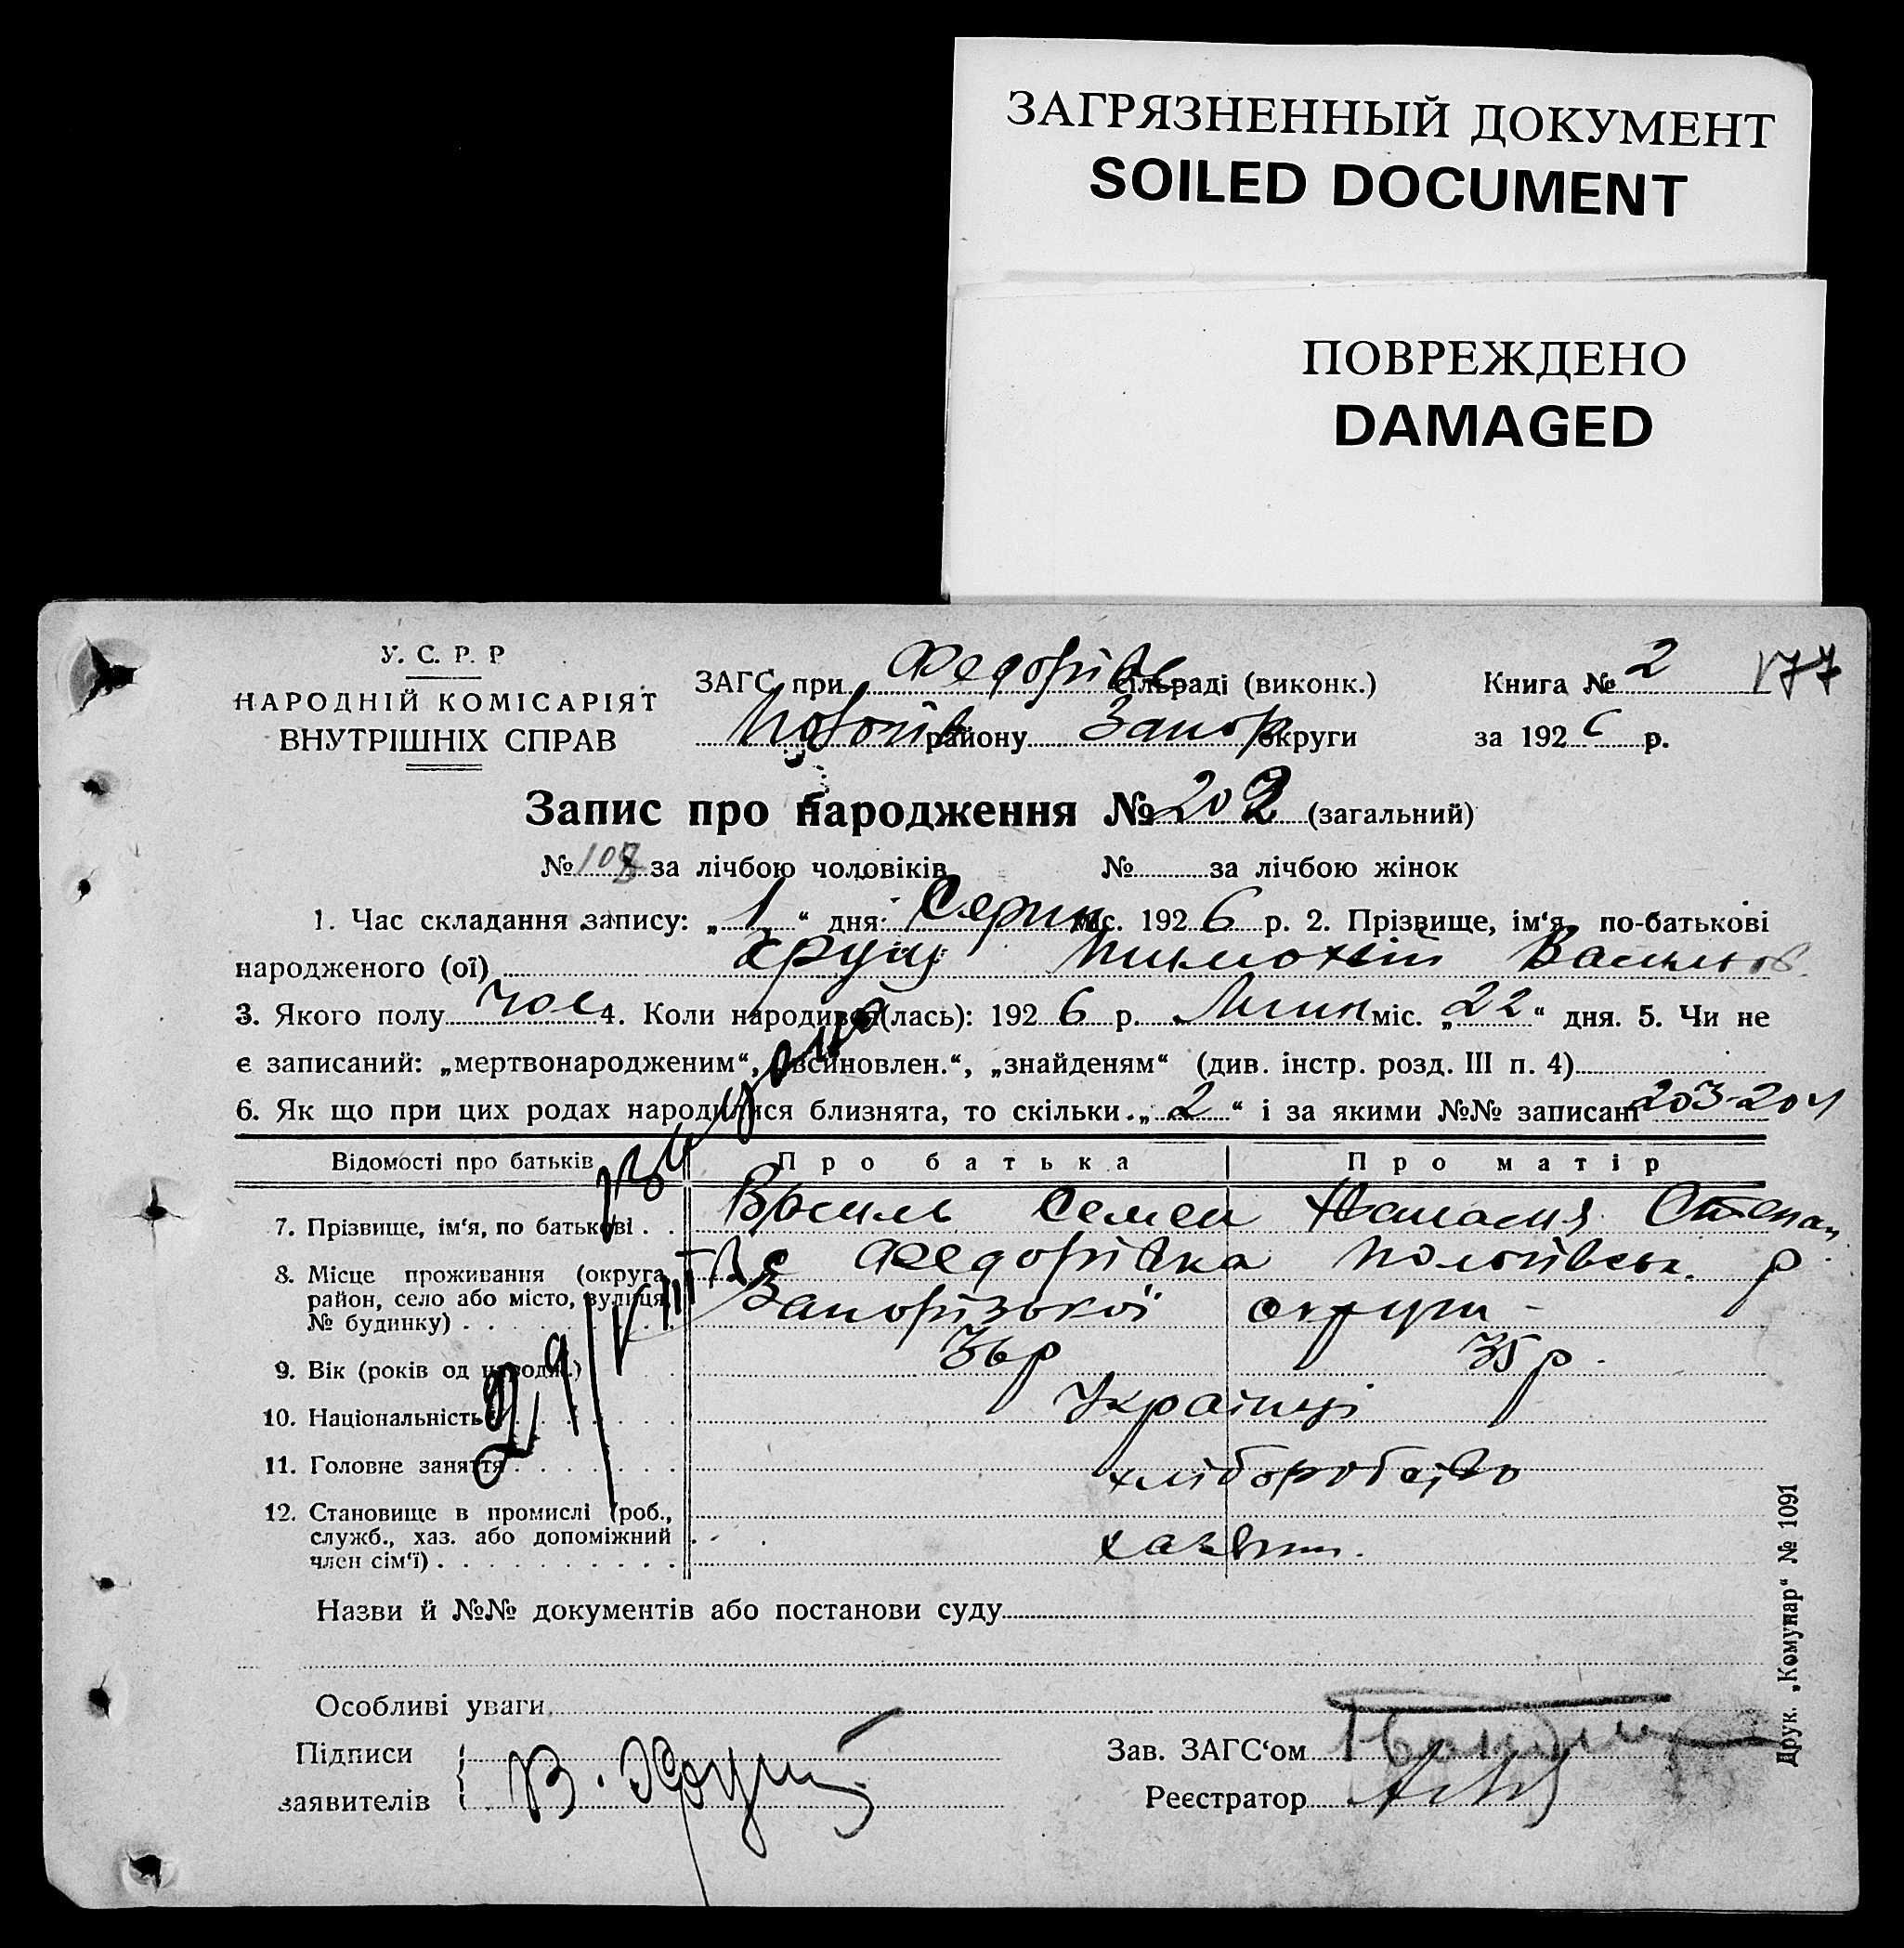 ЗАГРЯЗНЕННЫЙ ДОКУМЕНТ
SOILED DOCUMENT
ПОВРЕЖДЕНО
DAMAGED
У. С. Р. Р
НАРОДНІЙ КОМІСАРІЯТ
ВНУТРІШНІХ СПРАВ
ЗАГС при Федорівс сільраді (виконк.)
району Запор округи
Книга № 2 177
за 1926 р.
Запис про народження № 202 (загальний)
№ 108 за лічбою чоловіків № за лічбою жінок
1. Час складання запису: „1“ дня Серпн міс. 1926 р. 2. Прізвище, ім‘я, по-батькові
народженого (ої) Хрущ Тимохвій Васильов.
3. Якого полу чол 4. Коли народивс(лась): 1926 р. Липн міс. „22“ дня. 5. Чи не
є записаний: „мертвонародженим“, „всиновлен.“, „знайденям“ (див. інстр. розд. III п. 4)
6. Як що при цих родах народилися близнята, то скільки „2“ і за якими №№ записані 203-204
Відомості про батьків Про батька Про матір
7. Прізвище, ім‘я, по батькові Василь Семен Степан.
8. Місце проживання (округа, район, село або місто, вулиця, № будинку) с Федорівка Пологівськ. р
Запорізької округи -
9. Вік (років од народж.) 36 р 35 р.
10. Національність Українці
11. Головне заняття хліборобство
12. Становище в промислі (роб., служб., хаз. або допоміжний член сім‘ї)
29/VIII
Назви й №№ документів або постанови суду
Особливі уваги
Підписи заявителів В. Хрущ
Зав. ЗАГС‘ом
Реєстратор
Друк. „Комунар“ № 1091